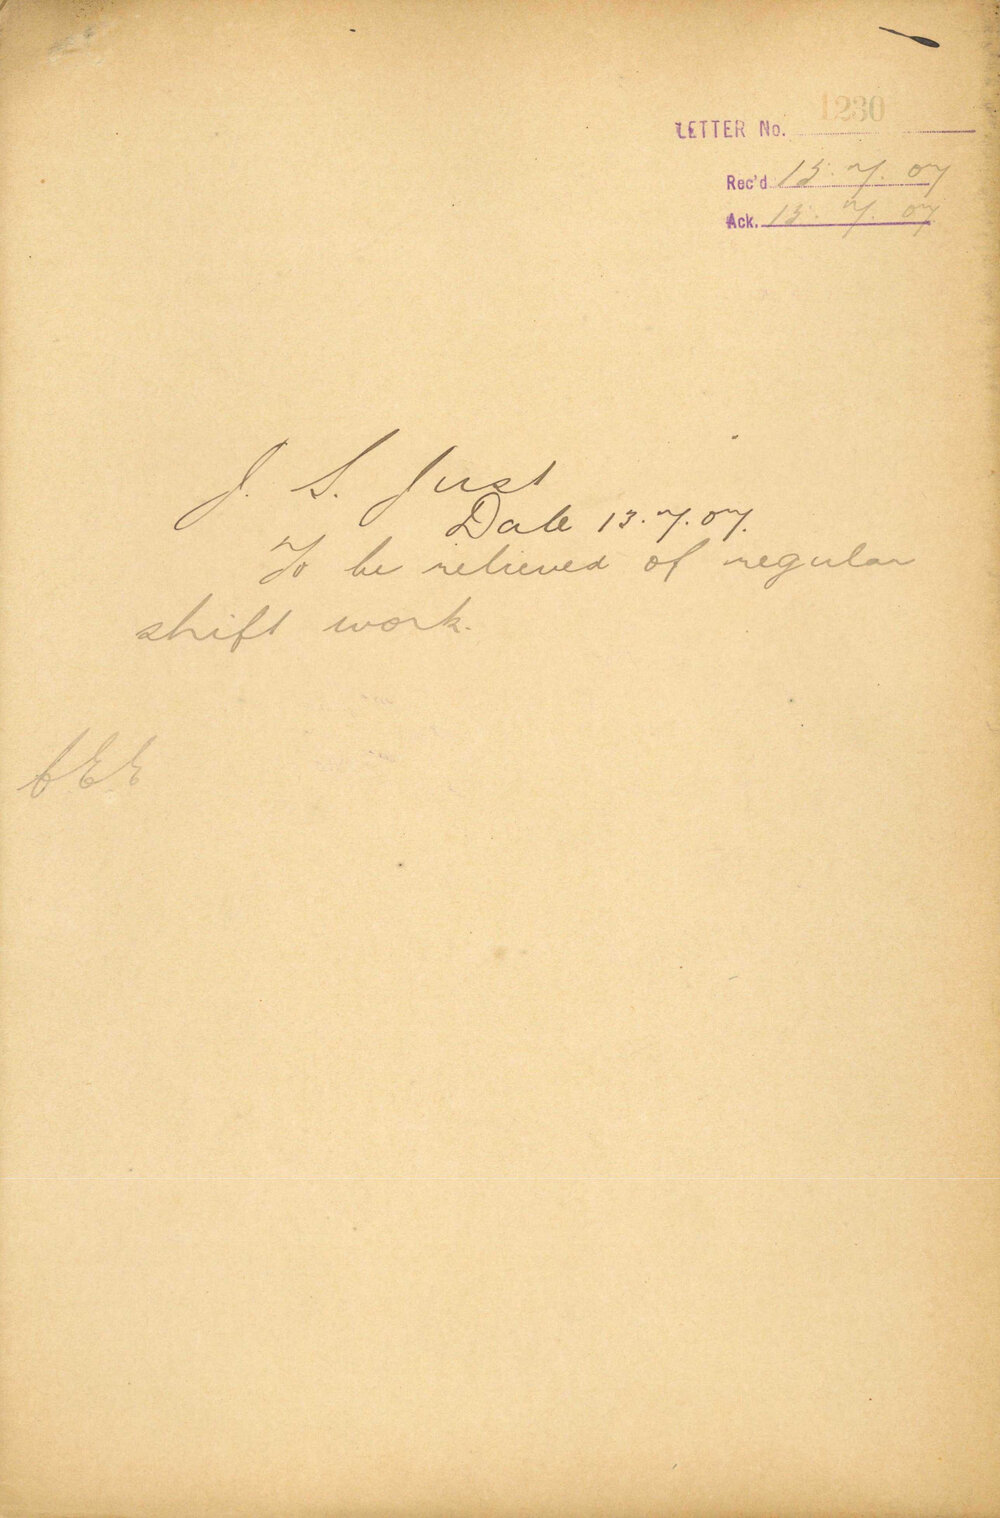 LETTER No. 1230
Rec'd 15.7.07
Ack. 15.7.07
J. S. Just
Date 13.7.07.
To be relieved of regular
shift work.
CEE